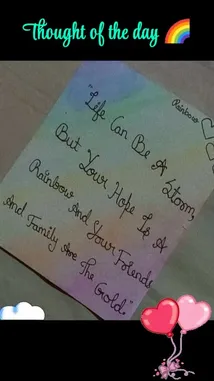 Thought of the day 🌈
Rainbow
"Life Can Be A Storm,
But Your Hope Is A
Rainbow And Your Friends
And Family Are The Gold."